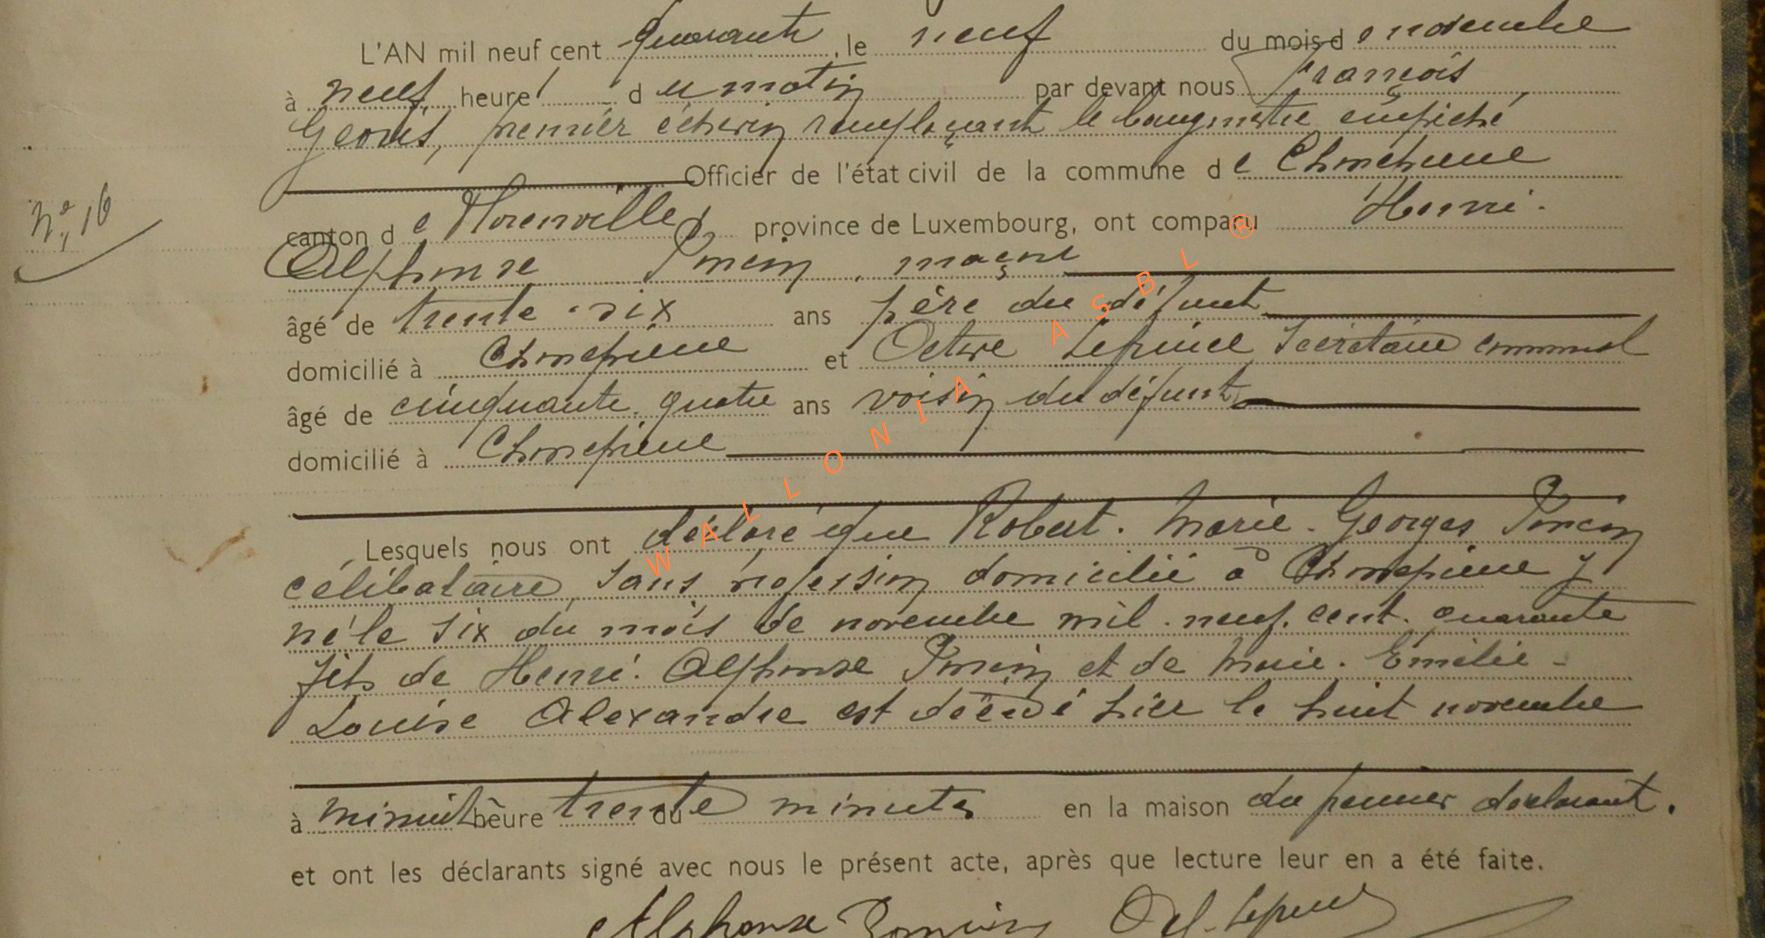 L'AN mil neuf cent quarante, le neuf du mois de novembre
à neuf heure du matin par devant nous François
Georis, premier échevin remplaçant le bourgmestre empêché
Officier de l'état civil de la commune de
canton de province de Luxembourg, ont comparu Henri.
Nº 16
Alphonse Poncin, maçon
âgé de trente-six ans père du défunt
domicilié à et Octave Lepince Secrétaire communal
âgé de cinquante quatre ans voisin du défunt
domicilié à
Lesquels nous ont déclaré que Robert. Marie. Georges Poncin
célibataire, sans profession domicilié à y
né le six du mois de novembre mil. neuf. cent. quarante
fils de Henri. Alphonse Poncin et de Marie. Emélie-
Louise Alexandre est décédé hier le huit novembre
à minuit heure trente du minutes en la maison du premier déclarant.
et ont les déclarants signé avec nous le présent acte, après que lecture leur en a été faite.
Alphonse Poncin Oct. Lepince
WALLONIA ASBL ®